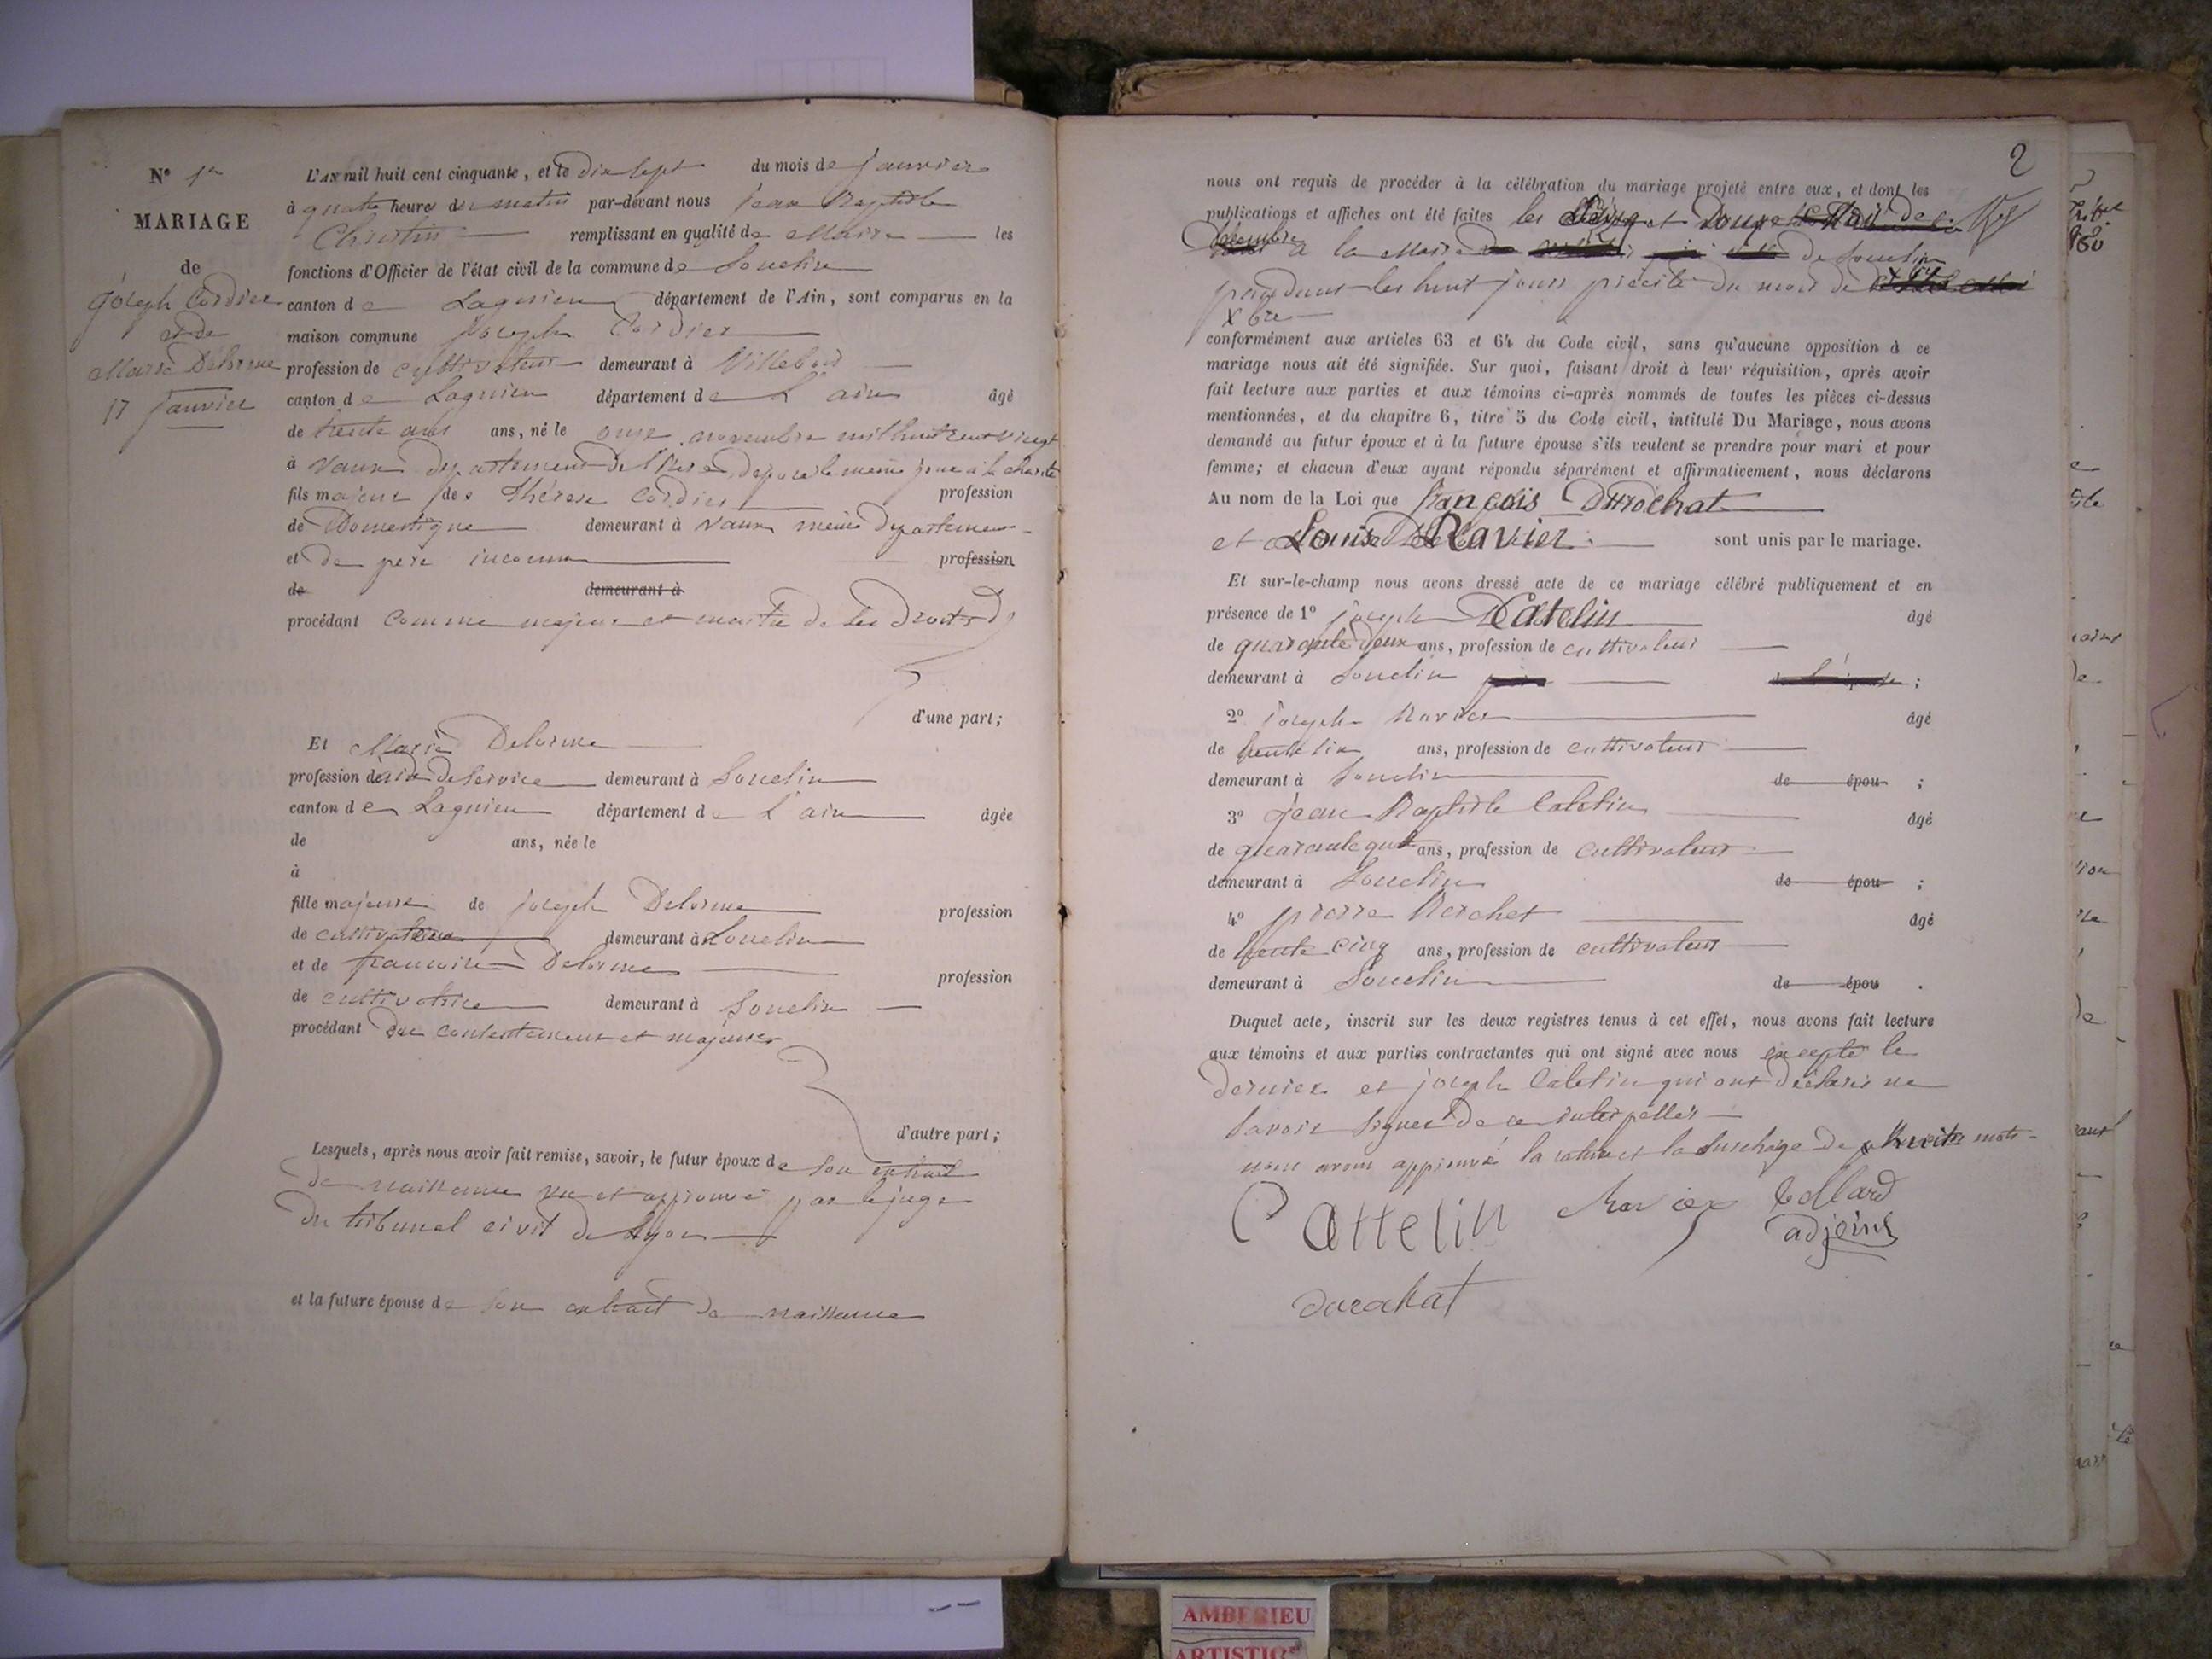 N° 1er
MARIAGE
de
Joseph Cordier
et de
Marie Delorme
17 Janvier
L'AN mil huit cent cinquante, et le dix sept du mois de janvier
à quatre heures du matin par-devant nous jean Baptiste
Christin remplissant en qualité de Maire les
fonctions d'Officier de l'état civil de la commune de Souclin
canton de Lagnieu département de l'Ain, sont comparus en la
maison commune Joseph Cordier
profession de cultivateur demeurant à Villebois
canton de Lagnieu département de L'ain âgé
de trente ans ans, né le onze novembre mil huit cent vingt
à Vaux departement de l'Isere déposé le meme jour à la charité
fils majeur de Thérese Cordier profession
de Domestique demeurant à Vaux meme departement
et de pere inconnu profession
de demeurant à
procédant comme majeur et maitre de ses Droits
d'une part;
Et Marie Delorme
profession de de Service demeurant à Souclin
canton de Lagnieu département de L'ain âgée
de ans, née le
à
fille majeure de joseph Delorme profession
de cultivateur demeurant à Souclin
et de francoise Delorme profession
de cultivatrice demeurant à Souclin
procédant du consentement et majeure
d'autre part;
Lesquels, après nous avoir fait remise, savoir, le futur époux de son extrait
de naissance vu et approuvé par le juge
du tribunal civil de Lyon
et la future épouse de son extrait de naissance
2
nous ont requis de procéder à la célébration du mariage projeté entre eux, et dont les
publications et affiches ont été faites les et Douze de
à la Maire de Souclin
pendant les huit jours précité du mois de
Xbre
conformément aux articles 63 et 64 du Code civil, sans qu'aucune opposition à ce
mariage nous ait été signifiée. Sur quoi, faisant droit à leur réquisition, après avoir
fait lecture aux parties et aux témoins ci-après nommés de toutes les pièces ci-dessus
mentionnées, et du chapitre 6, titre 5 du Code civil, intitulé Du Mariage, nous avons
demandé au futur époux et à la future épouse s'ils veulent se prendre pour mari et pour
femme; et chacun d'eux ayant répondu séparément et affirmativement, nous déclarons
Au nom de la Loi que françois Durochat
et Louise Ravier sont unis par le mariage.
Et sur-le-champ nous avons dressé acte de ce mariage célébré publiquement et en
présence de 1° joseph Catelin âgé
de quarante deux ans, profession de cultivateur
demeurant à Souclin ;
2° joseph Ravier âgé
de trente six ans, profession de cultivateur
demeurant à Souclin de épou ;
3° jean Baptiste Catelin âgé
de quarante quat ans, profession de cultivateur
demeurant à Souclin de épou ;
4° pierre Berchet âgé
de trente cinq ans, profession de cultivateur
demeurant à Souclin de épou .
Duquel acte, inscrit sur les deux registres tenus à cet effet, nous avons fait lecture
aux témoins et aux parties contractantes qui ont signé avec nous excepté le
dernier et joseph Catelin qui ont déclaré ne
savoir signer de ce interpellés
nous avons approuvé la rature et la surchage de mots
Cattelin Ravier Collard
adjoint
durochat
AMBERIEU
ARTISTIC